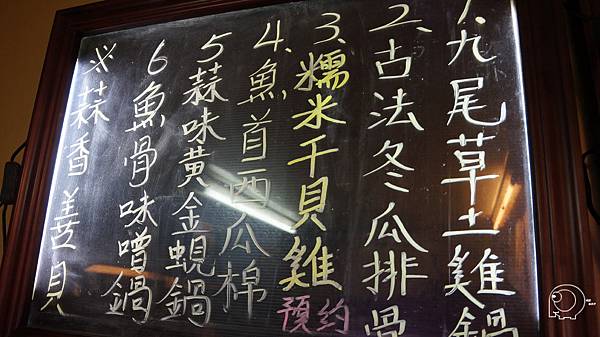 1.九尾草土雞鍋
2.古法冬瓜排骨
3.糯米干貝雞
預約
4.魚首西瓜棉
5蒜味黃金蜆鍋
6魚骨味噌鍋
※蒜香羙貝